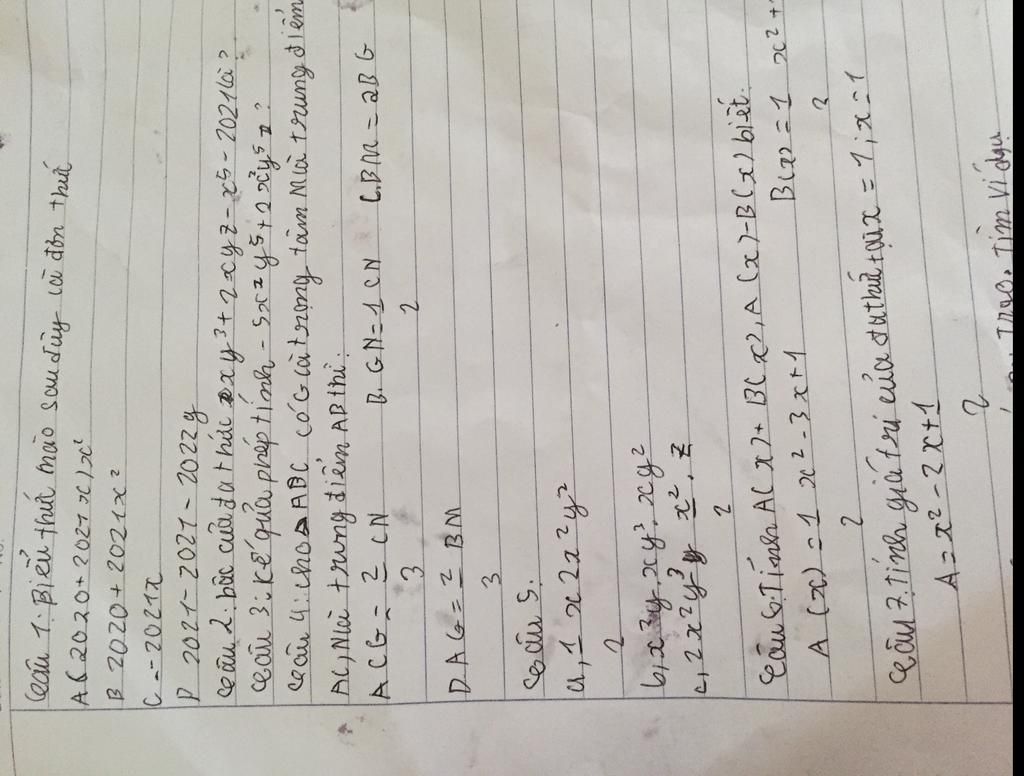 Câu 1: Biểu thức nào sau đây là đơn thức
A (2020 + 2021x) x²
B 2020 + 2021x²
C - 2021x
D 2021 - 2021 - 2022y
Câu 2. bậc của đa thức xy³ + 2xyz - x⁵ - 2021 là?
Câu 3: Kế quả phép tính - 5x²y⁵ + 2x²y⁵ = ?
Câu 4: cho Δ ABC có G là trọng tâm M là trung điểm
AC, N là trung điểm AB thì:
A CG = 2/3 CN B. GN = 1/2 CN C. BM = 2BG
D AG = 2/3 BM
Câu 5.
a, 1/2 x 2x²y²
b, x³y. xy³. xy²
c, 2x²y³y x²/2. z
Câu 6: Tính A(x) + B(x), A(x) - B(x) biết.
A(x) = 1/2 x² - 3x + 1 B(x) = 1/2 x² +
Câu 7. Tính giá trị của đa thức tại x = 1; x = 1/2
A = x² - 2x + 1